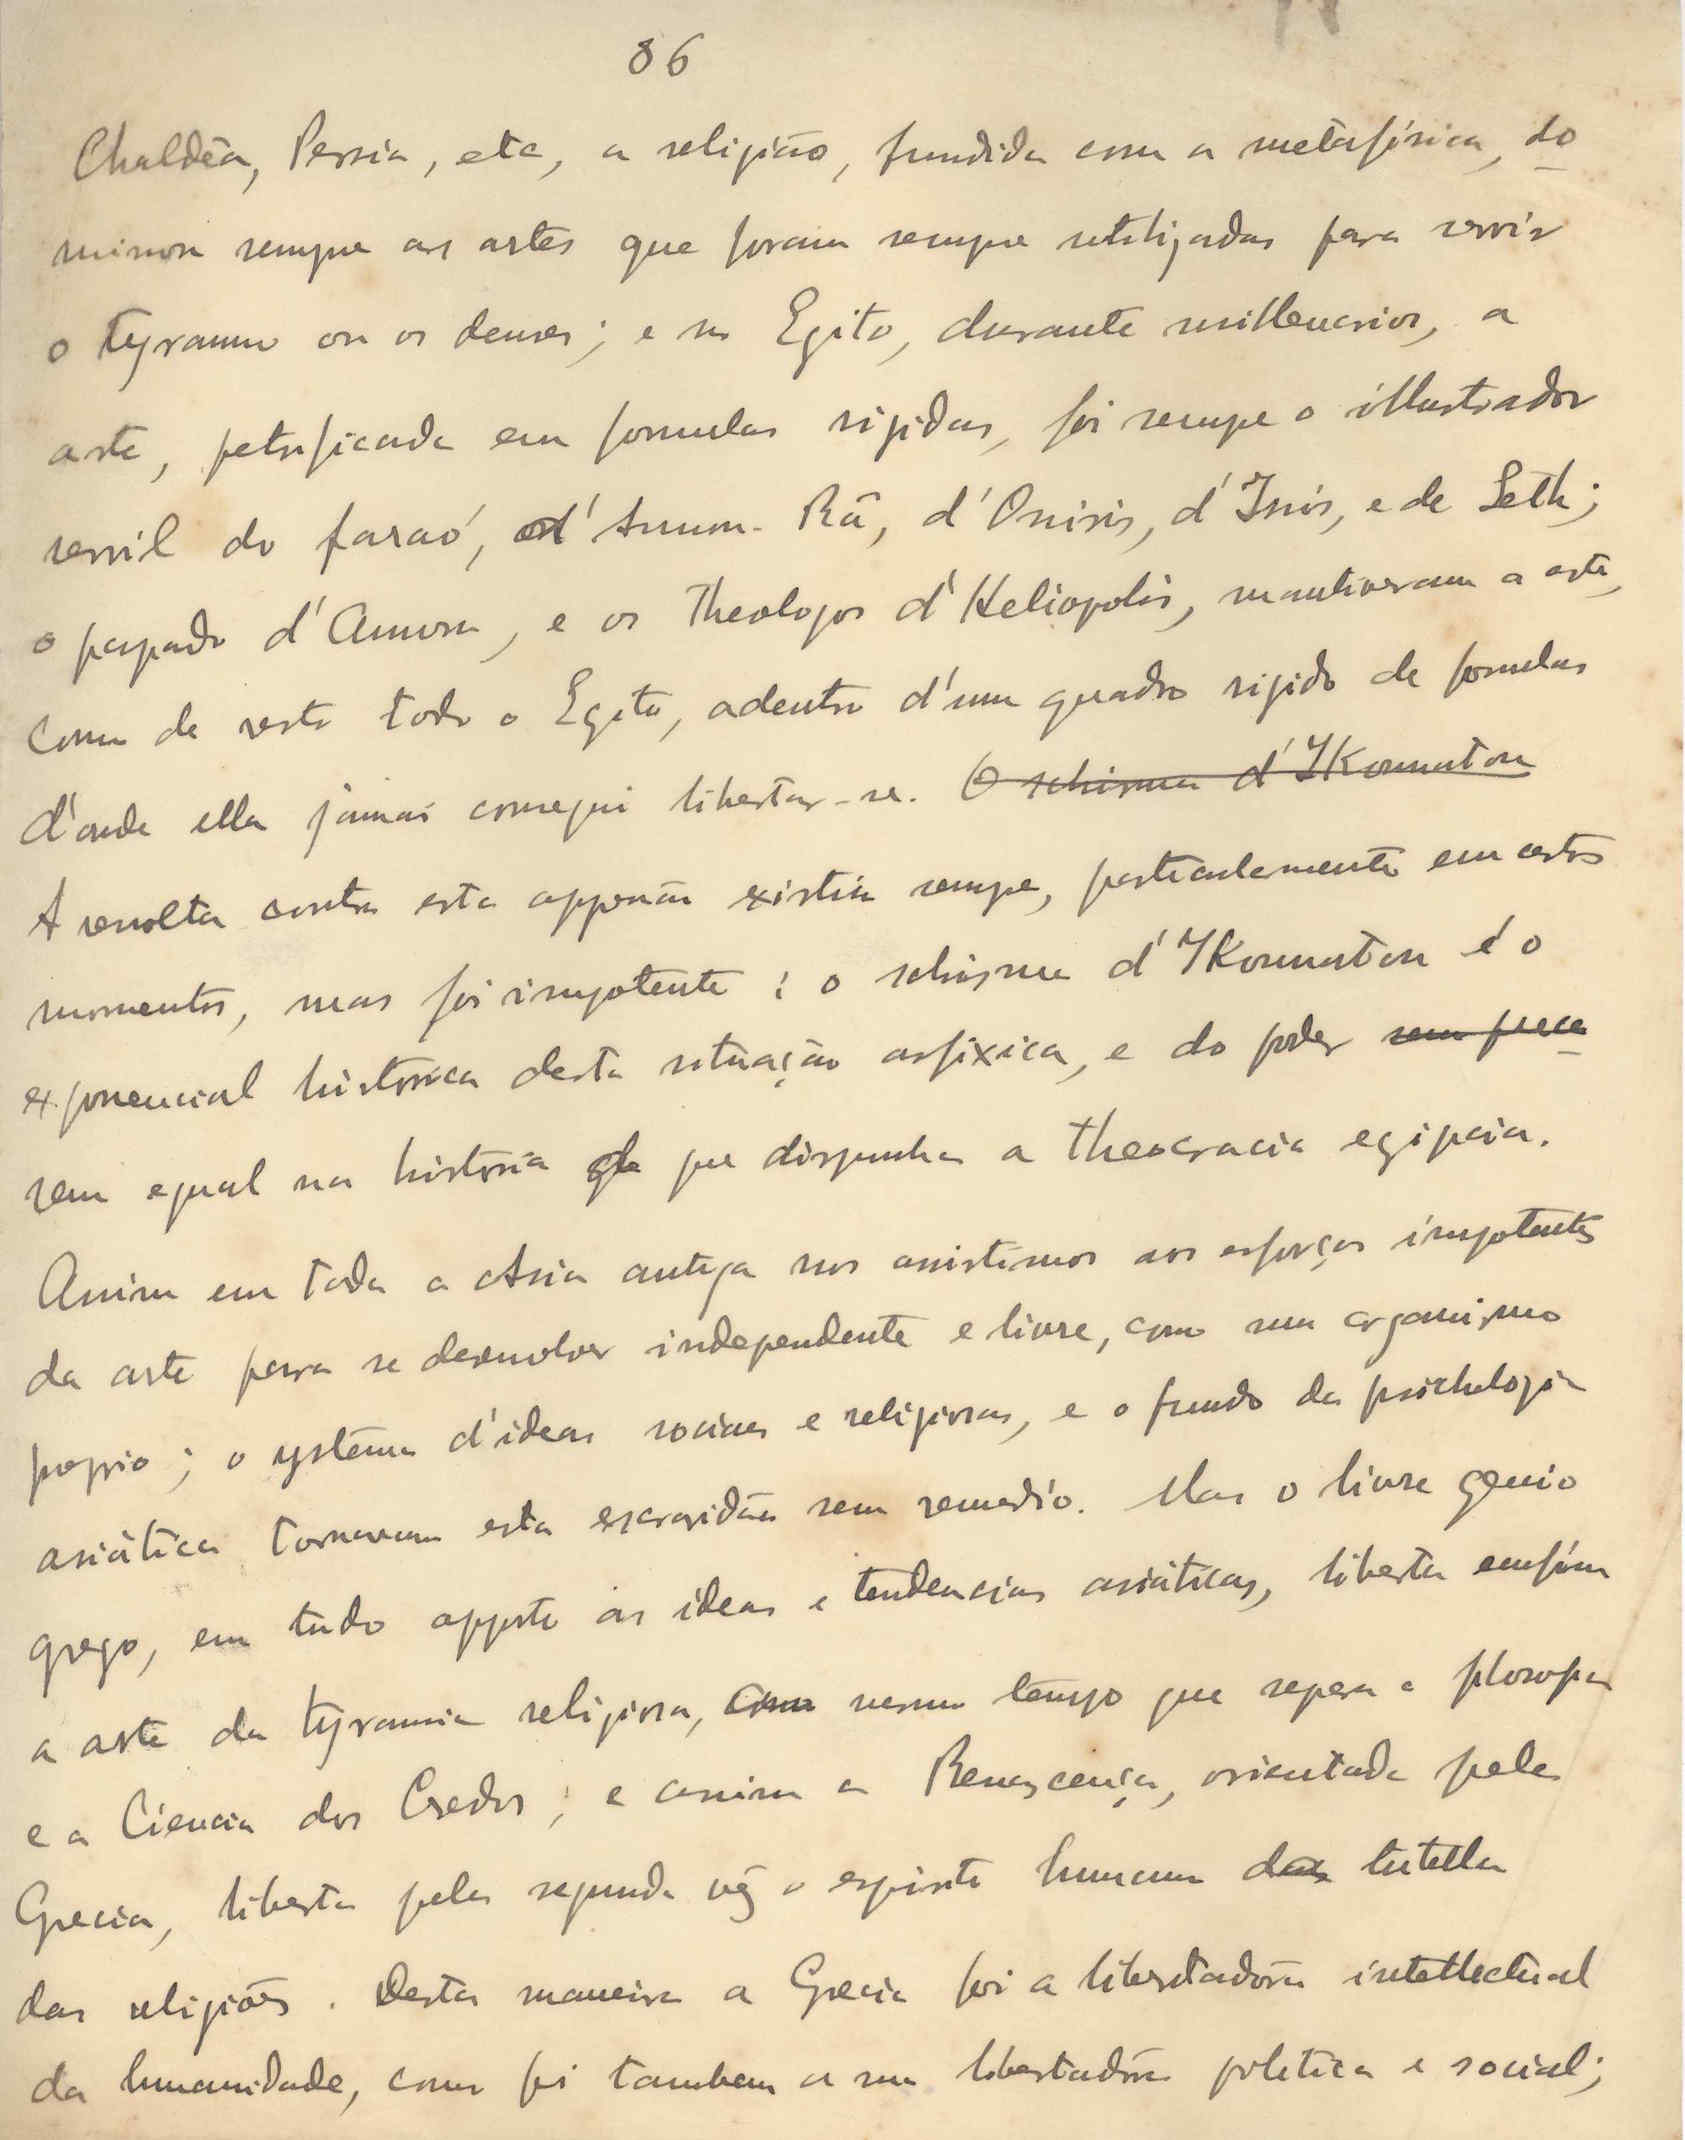 86
Chaldêa, Persia, etc, a religião, fundida com a metafísica, do
minou sempre as artes que foram sempre utilizadas para servir
o tyranno ou os deuses; e no Egito, durante millenarios, a
arte, petrificada em formulas rigidas, foi sempre o illustrador
servil do faraó, d'Ammon-Râ, d'Osiris, d'Isis, e de Seth;
o papado d'Amon, e os Theologos d'Heliopolis, mantiveram a arte,
como de resto todo o Egito, adentro d'um quadro rigido de formulas
d'onde ella jamais consegui libertar-se. O schisma d'IKounaton
A revolta contra esta oppressão existiu sempre, particularmente em certos
momentos, mas foi impotente: o schisma d'IKounaton é o
exponencial historica desta situação asfixica, e do poder sem prece
sem egual na historia de que dispunha a theocracia egipcia.
Assim em toda a Asia antiga nos assistimos aos esforços impotentes
da arte para se desenvolver independente e livre, como um organismo
proprio; o systema d'ideas sociaes e religiosas, e o fundo da psichologia
asiática tornavam esta escravidão sem remedio. Mas o livre genio
grego, em tudo opposto ás ideas e tendencias asiáticas, liberta emfim
a arte da tyrannia religiosa, com mesmo tempo que separa a filosofia
e a Ciencia dos Credos; e assim a Renascença, orientada pela
Grecia, liberta pela segunda vêz o espirito humano da tutella
das religiões. Desta maneira a Grecia foi a libertadôra intellectual
da humanidade, como foi tambem a sua libertadôra politica e social;